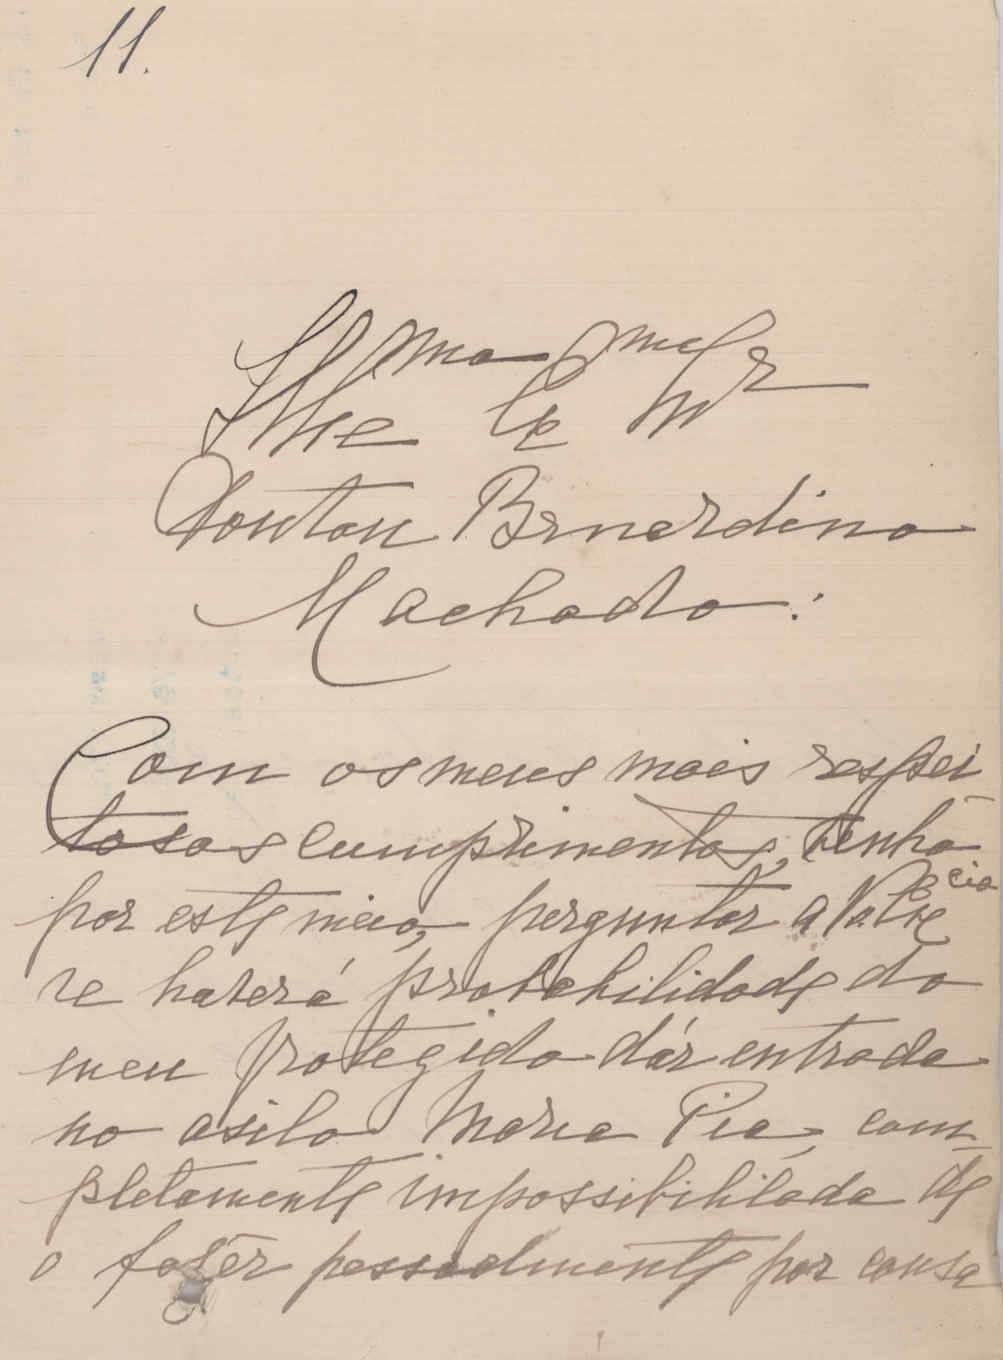 11.
Illmo Exmo Snr
Doutor Bernardino
Machado:
Com os meus mais respei-
tosos cumprimentos, tenho
por este meio, perguntar a V. Excia
se haverá probabilidade do
meu protegido dár entrada
no asilo Maria Pia, com-
pletamente impossibilitada de
o fazêr pessoalmente por causa